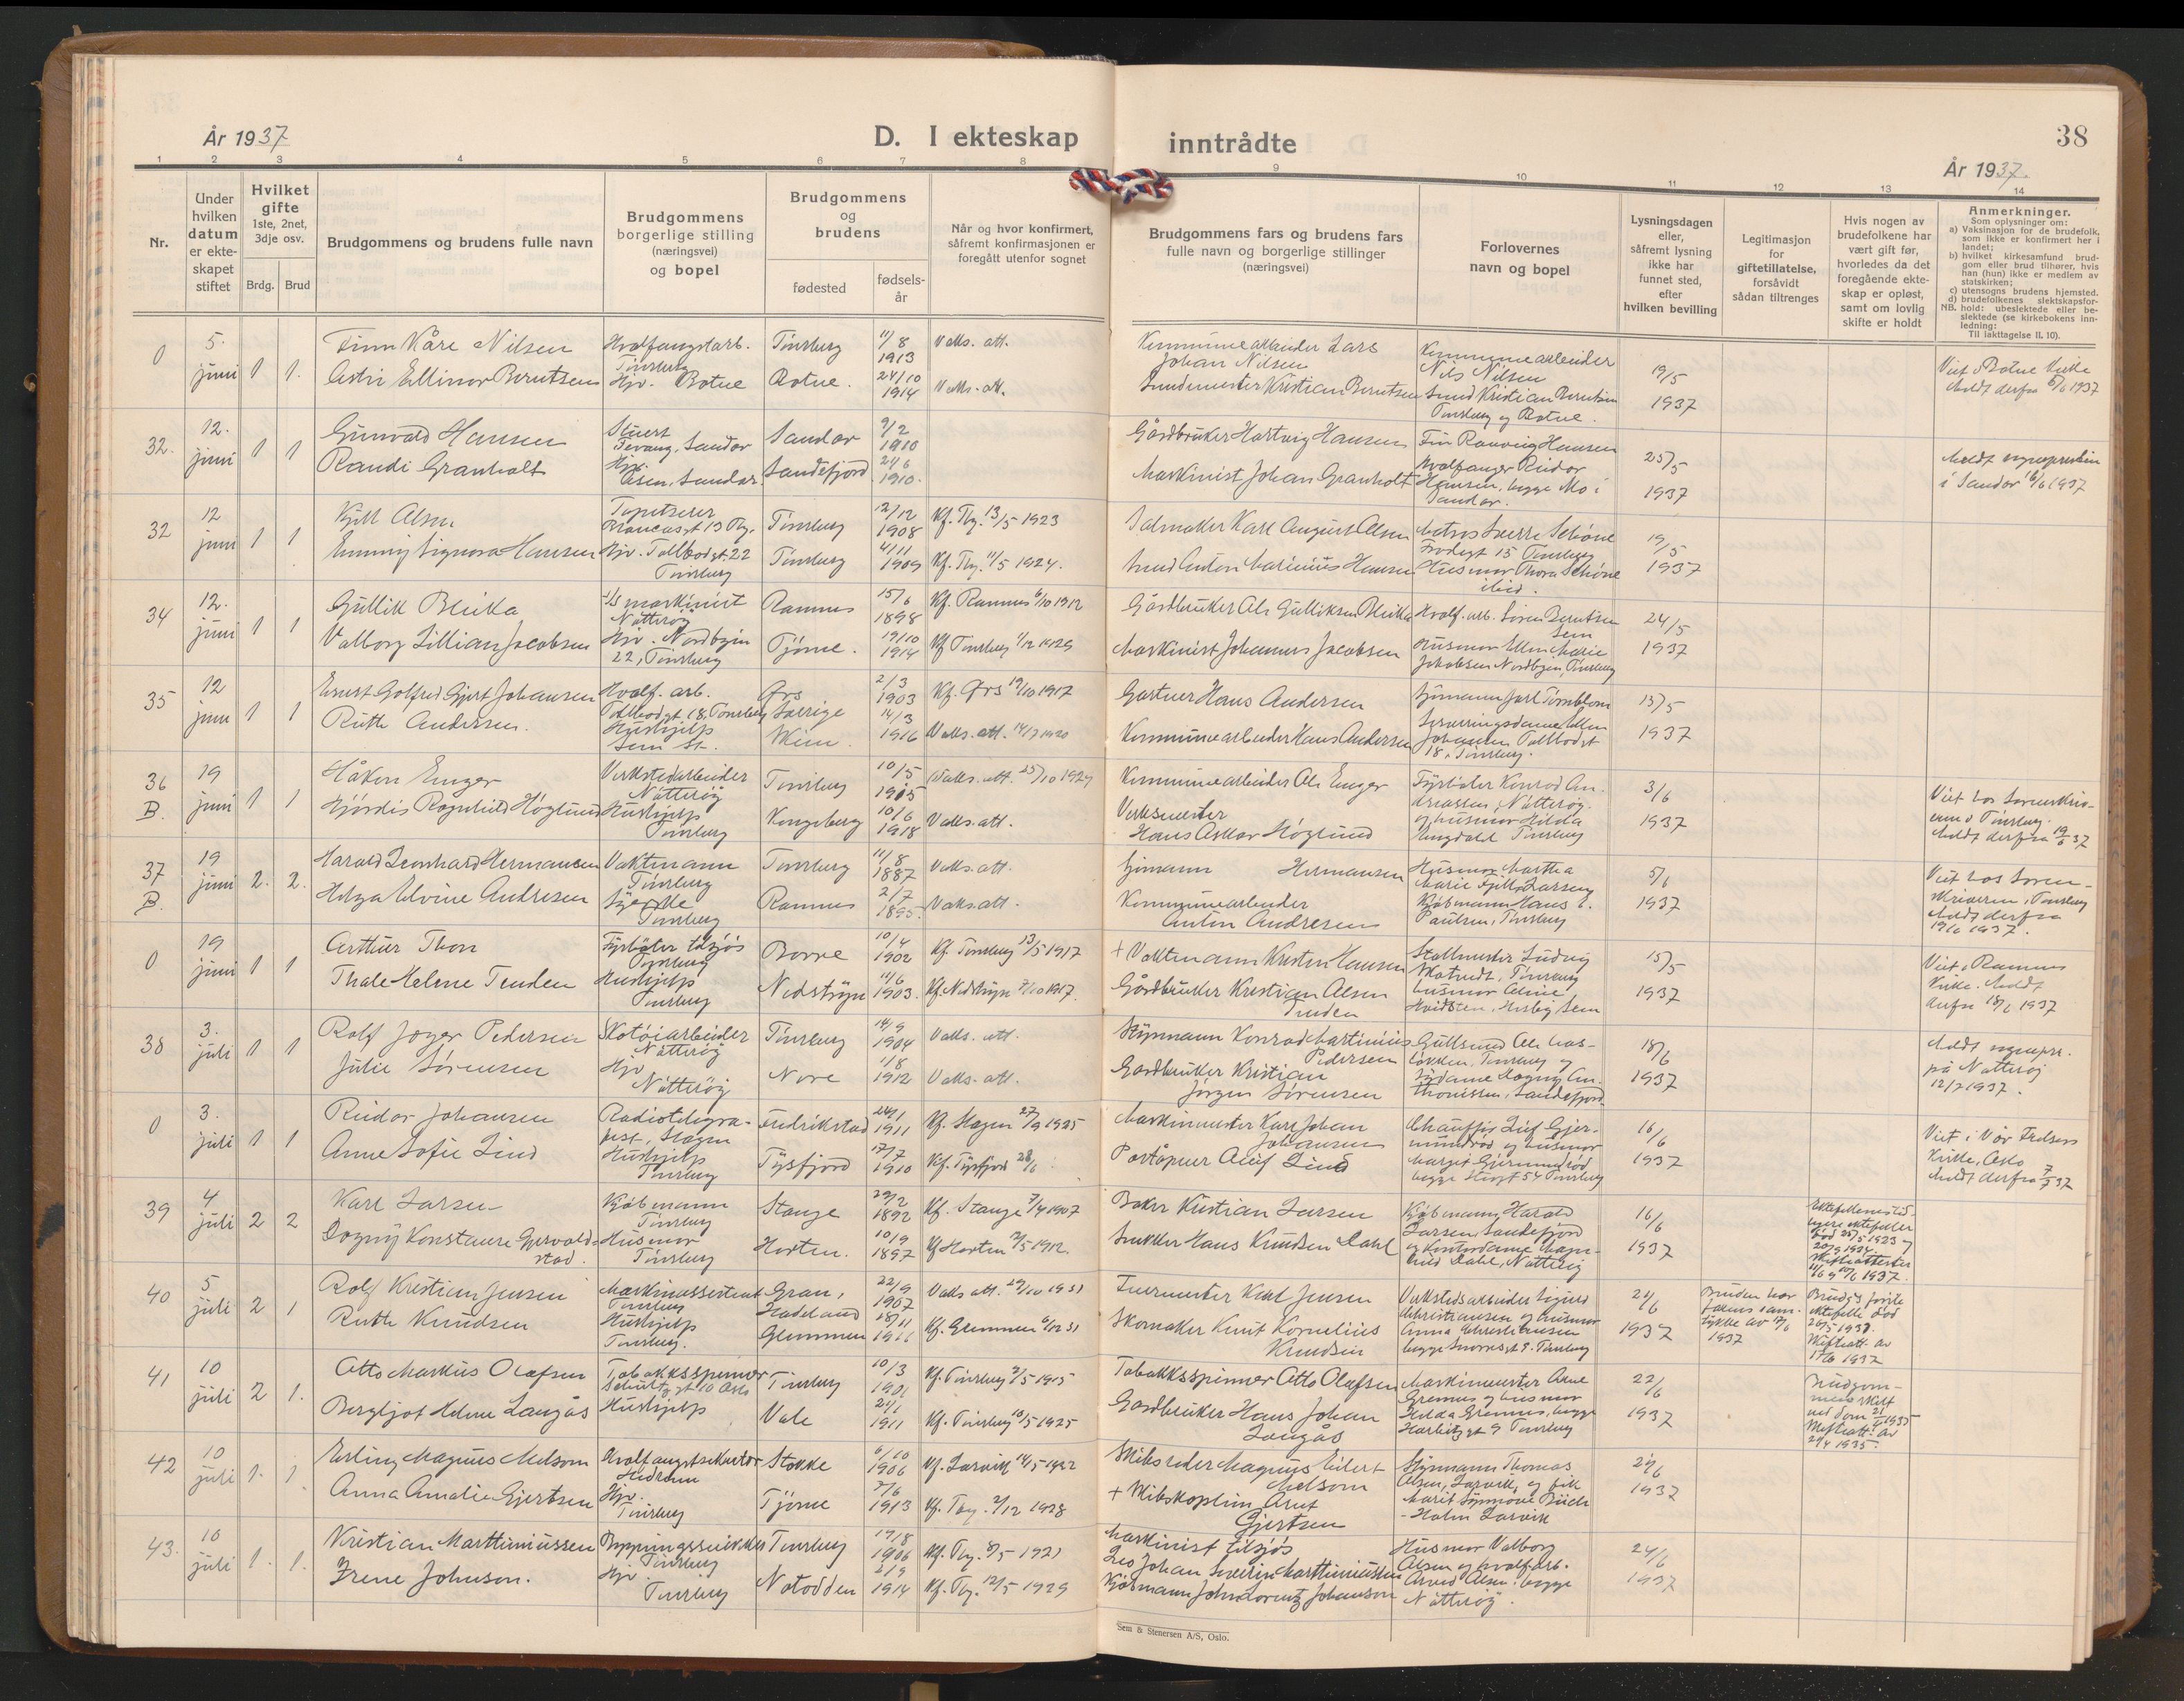 År 1937
D. I ekteskap
inntrådte
38
År 1937.
1 2 3 4 5 6 7 8 9 10 11 12 13 14
Nr.
Under
hvilken
datum
er ekte-
skapet
stiftet
Hvilket
gifte
1ste, 2net,
3dje osv.
Brdg. Brud
Brudgommens og brudens fulle navn
Brudgommens
borgerlige stilling
(næringsvei)
og bopel
Brudgommens
og
brudens
fødested
fødsels-
år
Når og hvor konfirmert,
såfremt konfirmasjonen er
foregått utenfor sognet
Brudgommens fars og brudens fars
fulle navn og borgerlige stillinger
(næringsvei)
Forlovernes
navn og bopel
Lysningsdagen
eller,
såfremt lysning
ikke har
funnet sted,
efter
hvilken bevilling
Legitimasjon
for
giftetillatelse,
forsåvidt
sådan tiltrenges
Hvis nogen av
brudefolkene har
vært gift før,
hvorledes da det
foregående ekte-
skap er opløst,
samt om lovlig
skifte er holdt
Anmerkninger.
Som oplysninger om:
a) Vaksinasjon for de brudefolk,
som ikke er konfirmert her i
landet;
b) hvilket kirkesamfund brud-
gom eller brud tilhører, hvis
han (hun) ikke er medlem av
statskirken;
c) utensogns brudens hjemsted.
d) brudefolkenes slektskapsfor-
NB. hold: ubeslektede eller be-
slektede (se kirkebokens inn-
ledning:
Til iakttagelse II. 10).
0 5. juni 1 1.
Finn Kåre Nilsen
Astri Ellinor Berntsen
Hvalfangstarb.
Tönsberg
Hjv. Botne
Tönsberg
Botne.
11/8
1913
24/10
1914
Vaks. att.
Vaks. att.
Kommunearbeider Lars
Johan Nilsen
Smedmester Kristian Berntsen
Kommunearbeider
Nils Nilsen
Smed Kristian Berntsen
Tönsberg og Botne.
19/5
1937
Viet i Botne kirke
Meldt derfra 5/6 1937
32. 12. juni 1 1
Gunvald Hansen
Randi Granholt
Stuert
Sandar
Hjv.
Sandar.
Sandar
Sandefjord
9/2
1910
24/6
1910.
Gårdbruker Hartvig Hansen
Maskinist Johan Granholt
Hvalfanger Reidar
Hansen, begge Mo i
Sandar.
25/5
1937
Meldt sognepresten
i Sandar 16/6 1937
32 12 juni 1 1
Kjell Olsen
Emmy Signora Hansen
Tapetserer
Hjv. Tollbodgt. 22
Tönsberg
Tönsberg
Tönsberg
12/12
1908
4/11
1909
Kf. Tbg. 13/5 1923
Kf. Tbg. 11/5 1924.
Salmaker Karl August Olsen
Smed Anton Marinius Hansen
Matros Sverre Schöne
Frodegt 15 Tönsberg
Husmor Thora Schöne
ibid.
19/5
1937
34 12. juni 1 1
Gullik Bleika
Valborg Lillian Jacobsen
maskinist
Nötteröy
Hjv. Nordbyen
22, Tönsberg
Ramnes
Tjöme.
15/6
1898
19/10
1914
Kf. Ramnes 6/10 1912
Kf Tönsberg 1/12 1929
Gårdbruker Ole Gulliksen Bleika
Maskinist Johannes Jacobsen
Hvalf. arb. Sören Berntsen
Sem
Husmor Ellen Marie
Jakobsen Nordbyen, Tönsberg
24/5
1937
35 12 juni 1 1
Ernst Golfred Gjert Johansen
Ruth Andersen.
Hvalf. arb.
Tollbodgt. 18, Tönsberg
Hushjelp
Sem St.
Ørs
Sverige
Skien.
2/3
1903
14/3
1916
Kf. Ørs 19/10 1917
Vaks. att. 14/7 1920
Gartner Hans Andersen
Kommunearbeider Hans Andersen
Sjömann Jarl Törnblom
Serveringsdame Ellen
Johansen Tollbodgt
18, Tönsberg.
15/5
1937
36 B. 19 juni 1 1
Håken Enger
Hjördis Ragnhild Höglund
Verkstedarbeider
Nötteröy
Hushjelp
Tönsberg
Tönsberg
Kongsberg
10/5
1915
10/6
1918
Vaks. att. 25/10 1924
Vaks. att.
Kommunearbeider Ole Enger
Verksmester
Hans Oskar Höglund
Fyrböter Konrad An-
dreassen, Nötteröy.
og husmor Hilda
Engdahl Tönsberg
3/6
1937
Viet hos Sorenskriv-
eren i Tönsberg.
Meldt derfra 19/6 37
37 B. 19 juni 2. 2.
Harald Leonhard Hermansen
Helga Elvine Andresen
Vaktmann
Tönsberg
Syerske
Tönsberg
Tönsberg
Ramnes
11/8
1887
2/7
1895.
Vaks. att.
Vaks. att.
Sjömann Hermansen
Kommunearbeider
Anton Andresen
Husmor Martha
Marie Larsen
Kjöbmann Hans E.
Paulsen, Tönsberg
5/6
1937
Viet hos Soren-
skriveren, Tönsberg
Meldt derfra
19/6 1937.
0 19 juni 1 1
Arthur Thon
Thale Helene Tenden
Fyrböter tilsjös
Tönsberg
Hushjelp
Tönsberg
Borre
Nedstryn
10/4
1902
11/6
1903.
Kf. Tönsberg 13/5 1917
Kf. Nedstryn 7/10 1917.
+ Vaktmann Kristen Hansen
Gårdbruker Kristian Olsen
Tenden
Stallmester Ludvig
Tönsberg
husmor Oline
Hvidsten, Husby Sem
15/5
1937
Viet i Ramnes
Kirke. Meldt
derfra 18/6 1937
38 3. juli 1 1
Rolf Jæger Pedersen
Julie Sörensen
Skotöiarbeider
Nötteröy
Hjv
Nötteröy
Tönsberg
Nore
14/9
1904
1/8
1912
Vaks. att.
Vaks. att.
Styrmann Konrad Martinius
Pedersen
Gårdbruker Kristian
Jörgen Sörensen
Gullsmed Ole Aas-
løkken, Tönsberg og
Sydame Magny An-
thonissen, Sandefjord
18/6
1937
Meldt sognepr.
på Nötteröy
12/7 1937.
0 3. juli 1 1
Reidar Johansen
Anne Sofie Lind
Radiotelegra-
fist, Slagen
Hushjelp
Tönsberg
Fredrikstad
Tysfjord
24/1
1911
17/7
1910
Kf. Slagen 27/9 1925
Kf. Tysfjord 28/6
Maskinmester Karl Johan
Johansen
Poståpner Aleif Lind
Chauffør Leif Gjer-
mundröd og husmor
Margit Gjermundröd,
begge Storgt 54 Tönsberg
16/6
1937
Viet i Vår Frelsers
Kirke, Oslo
Meldt derfra 7/7 37
39 4 juli 2 2
Karl Larsen
Dagny Konstance Gjervald-
stad.
Kjöbmann
Tönsberg
Husmor
Tönsberg
Stange
Horten.
29/2
1892
10/9
1897
Kf. Stange 7/4 1907
Kf Horten 12/5 1912.
Baker Kristian Larsen
Snekker Hans Knudsen Dahl
Kjöbmann Harald
Larsen, Sandefjord
og Kontordame Magn-
hild Dahl, Nötteröy
16/6
1937
40 5 juli 2 1
Rolf Kristian Jensen
Ruth Knudsen
Maskinassistent
Tönsberg
Hushjelp
Tönsberg.
Gran,
Hadeland
Glemmen
22/9
1907
18/11
1916
Vaks att. 29/10 1931
Kf. Glemmen 6/12 31
Murmester Karl Jensen
Skomaker Knut Kornelius
Knudsen
Verkstedsarbeider Sigurd
Christiansen og husmor
Anna Christiansen
begge Tönsberg
21/6
1937
Bruden har
farens sam-
tykke av 17/6
1937
Brudg. forrige
ektefelle död
26/5 1931.
Skifteatt. av
17/6 1937
41 10 juli 2 1.
Otto Markus Olafsen
Bergljot Helene Langås
Tobakksspinner
Schultzgt 10 Oslo
Hushjelp
Tönsberg
Våle
10/3
1901
24/1
1911
Kf. Tönsberg 2/5 1915
Kf. Tönsberg 10/5 1925
Tobakksspinner Otto Olafsen
Gårdbruker Hans Johan
Langås
Maskinmester Arne
Grennes og husmor
Hilda Grennes, begge
Harbitzgt 9 Tönsberg
22/6
1937
Brudgom-
mens skilt
ved dom 21/4 1935
Skifteatt. av
29/4 1935
42 10 juli 1. 1.
Erling Magnus Melsom
Anna Amalie Gjertsen
Hvalfangstsekretær
Hedrum
Hjv.
Tönsberg
Stokke
Tjöme
6/10
1906
7/6
1913
Kf. Larvik 14/5 1922
Kf. Tbg. 2/12 1928
Skibsreder Magnus Eilert
Melsom
+ Skibskaptein Arnt
Gjertsen
Styrmann Thomas
Olsen, Larvik, og frk
Marit Synnöve Buch
- Holm Larvik
29/6
1937
43. 10 juli 1. 1.
Kristian Marthiniussen
Irene Johnson.
Bygningssnekker
Tönsberg
Hjv.
Tönsberg
Tönsberg
Notodden
19/8
1906
2/9
1914
Kf. Tbg. 8/5 1921
Kf. Tbg. 12/5 1929
Maskinist tilsjös
Leo Johan Severin Marthiniussen
Kjörmann John Lorentz Johanson
Husmor Valborg
Olsen og hvalfarb.
Arvid Olsen, begge
Nötteröy.
24/6
1937
Sem & Stenersen A/S, Oslo.